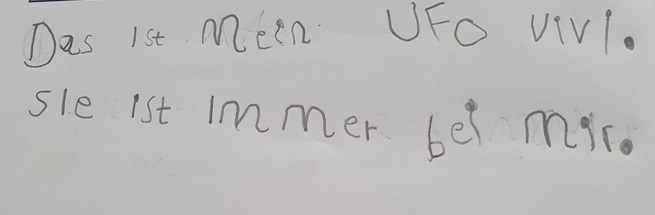 Das ist Mein UFO vivi.
Sie ist immer bei mir.